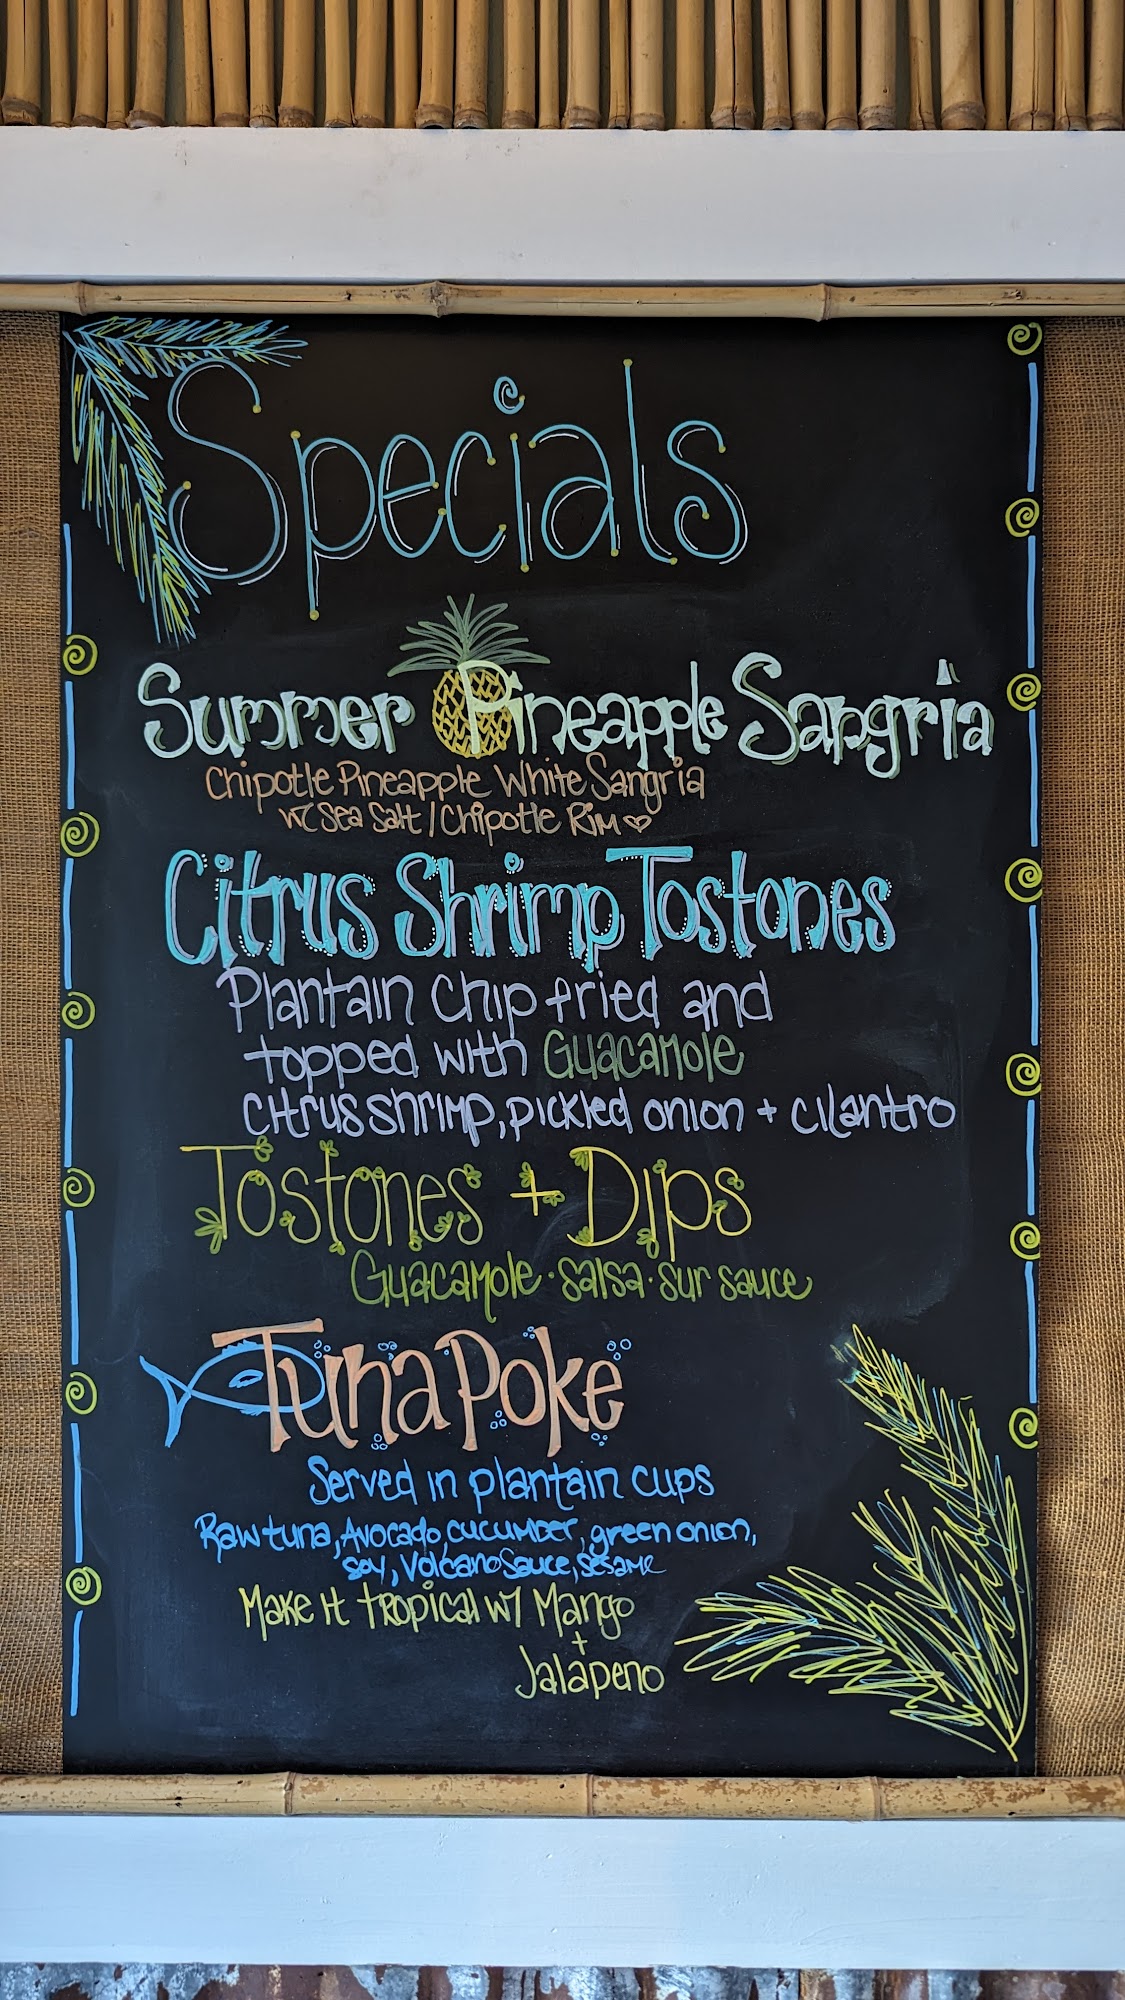 Specials
Summer Pineapple Sangria
Chipotle Pineapple White Sangria
w/ Sea Salt / Chipotle Rim
Citrus Shrimp Tostones
Plantain Chip fried and
topped with Guacamole
citrus shrimp, pickled onion + cilantro
Tostones + Dips
Guacamole · salsa · sur sauce
Tuna Poke
Served in plantain cups
Raw tuna, Avocado, cucumber, green onion,
soy, Volcano Sauce, sesame
Make it tropical w/ Mango
+
Jalapeno